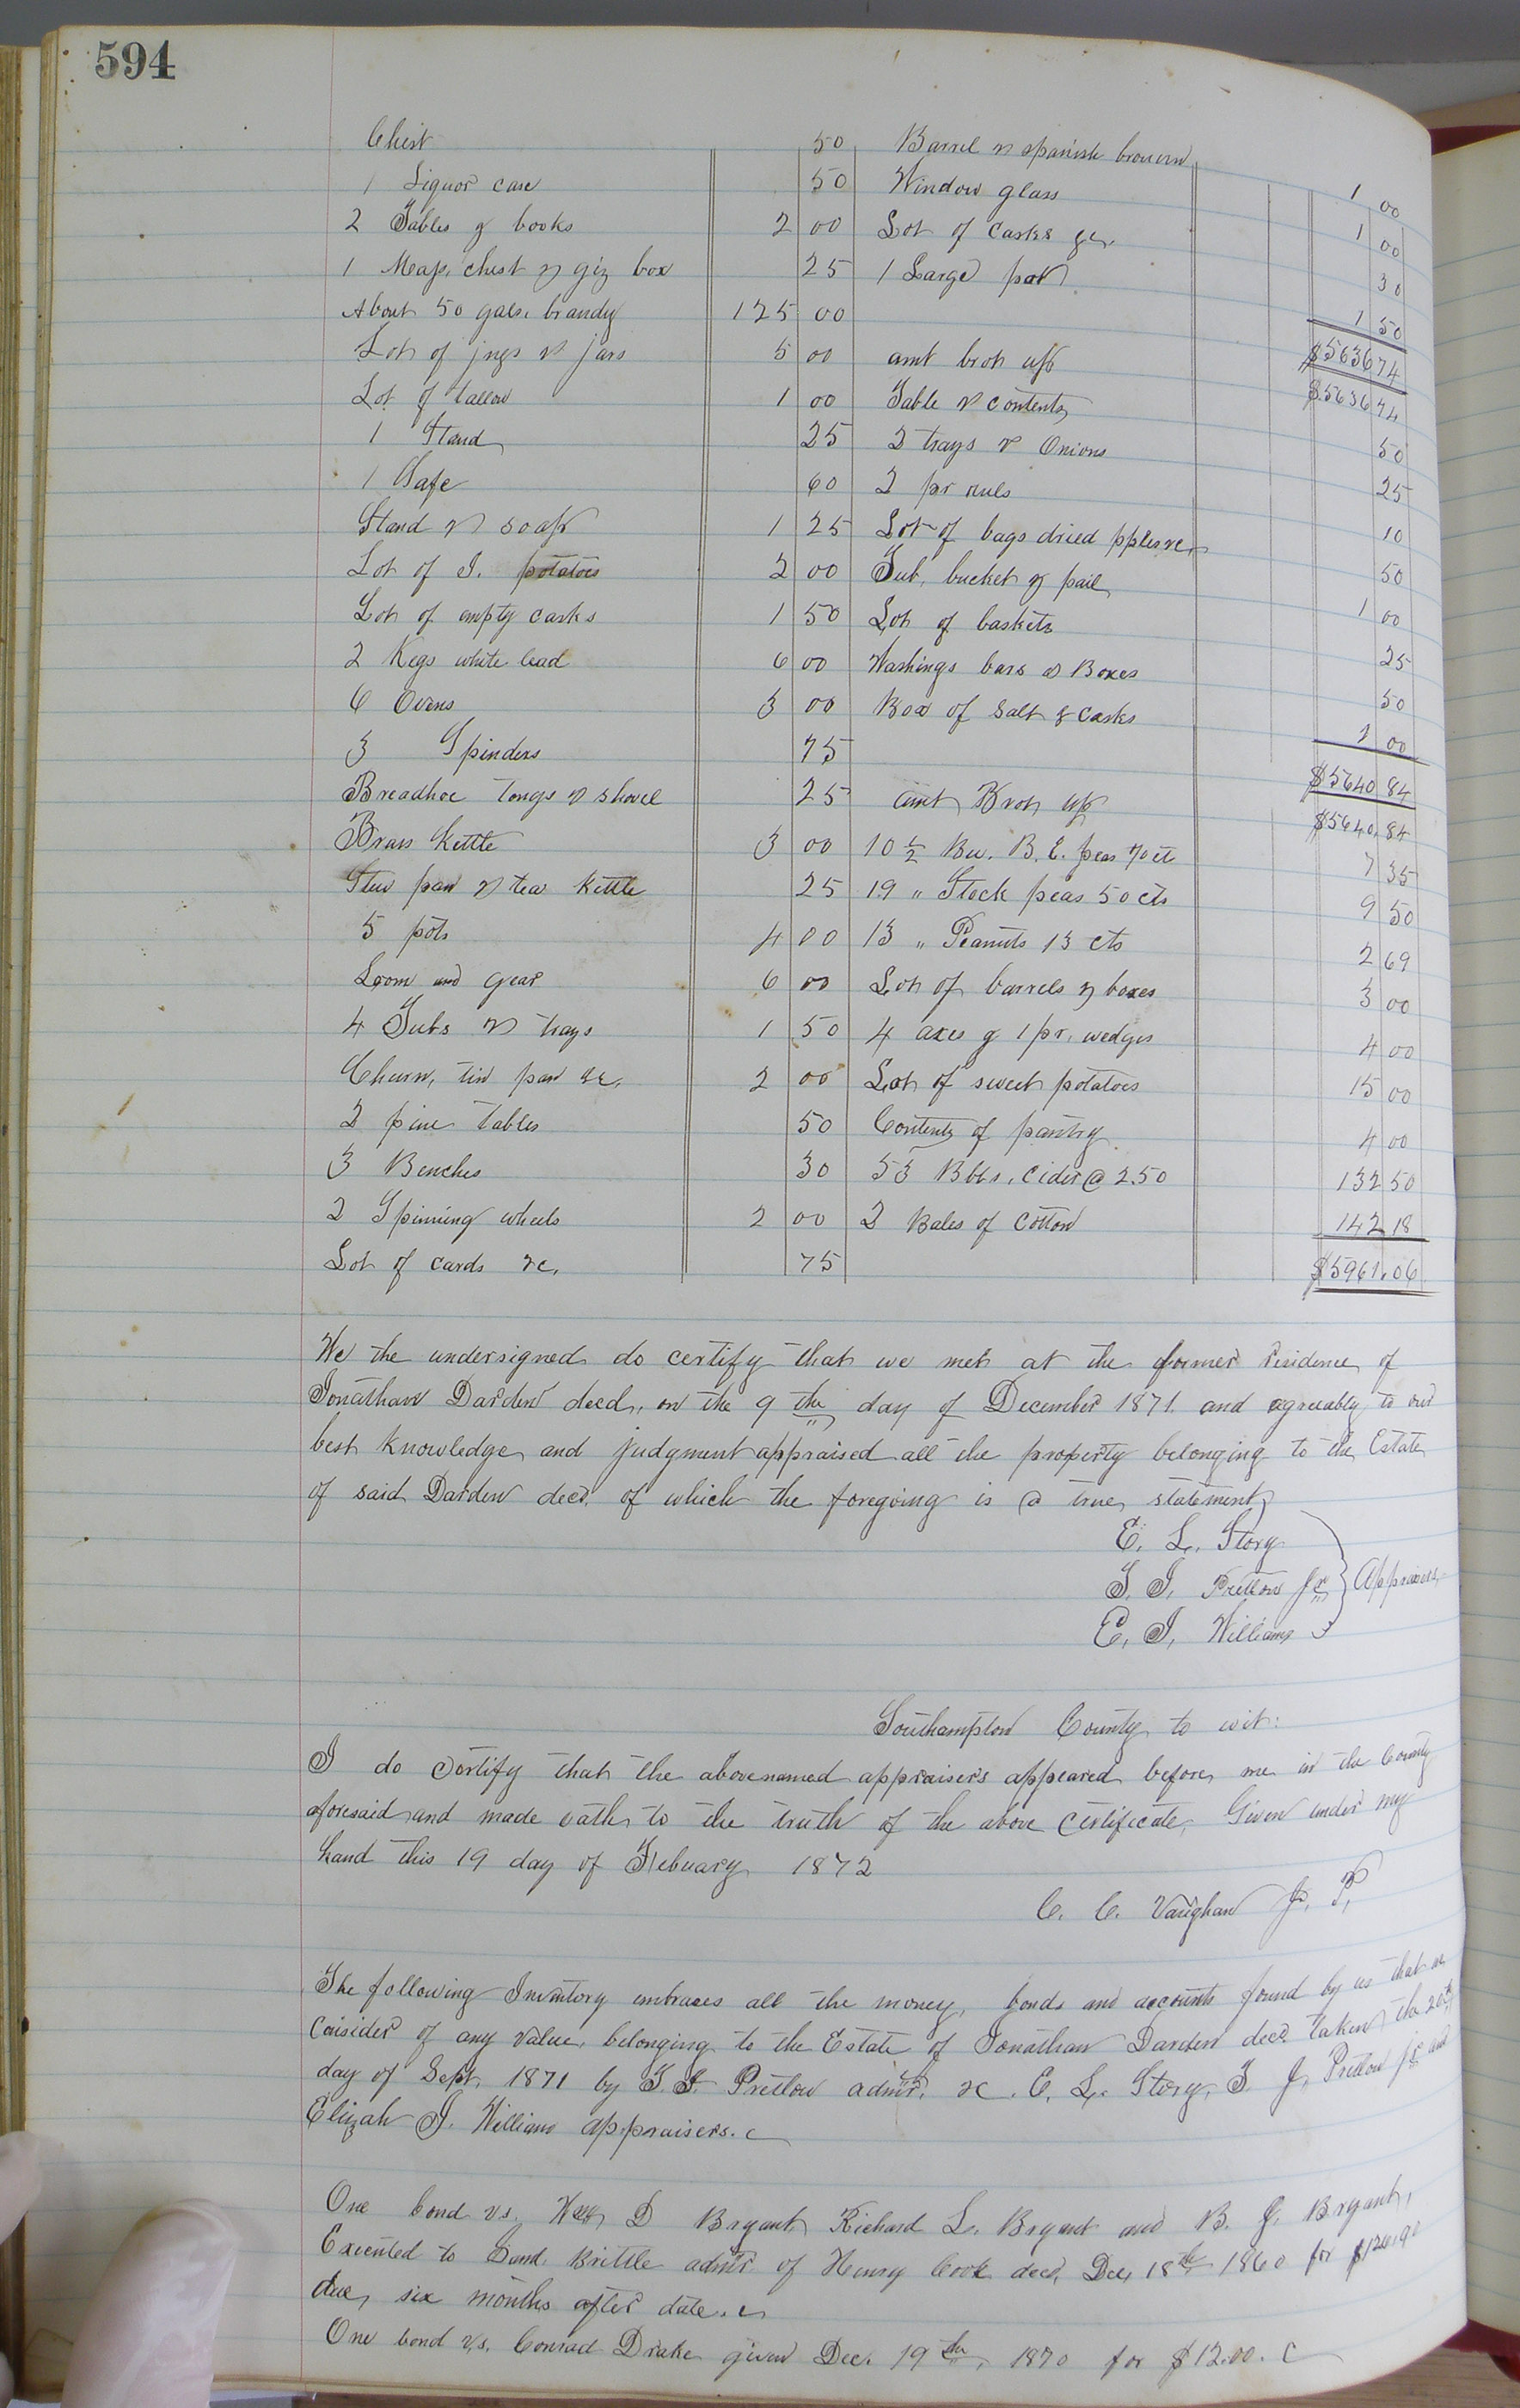 594
Chest 50
1 Liquor case 50
2 Tables & books 2 00
1 Map, chest & giz box 25
About 50 gals. brandy 125 00
Lot of jugs & jars 5 00
Lot of tallow 1 00
1 Stand 25
1 Safe 60
Stand & soap 1 25
Lot of I. potatoes 2 00
Lot of empty casks 1 50
2 Kegs white lead 6 00
6 Ovens 3 00
3 Spinders 75
Breadhoe tongs & shovel 25
Brass Kettle 3 00
Stew pan & tea Kettle 25
5 pots 4 00
Loom and gear 6 00
4 Tubs & trays 1 50
Churn, tin pan &c. 2 00
2 pine tables 50
3 Benches 30
2 Spinning wheels 2 00
Lot of cards &c. 75
Barrel & spanish brown 1 00
Window glass 1 00
Lot of casks &c. 30
1 Large pot 1 50
$5636 74
amt brot up $5636 74
Table & contents 50
2 trays & Onions 25
2 pr 10
Lot of bags dried pples &c. 50
Tub, bucket & pail 1 00
Lot of baskets 25
Washings bars & Boxes 50
Box of Salt & casks 1 00
$5640 84
amt Brot up $5640.84
10 1/2 Bu. B. E. peas 70 cts 7 35
19 " Stock peas 50 cts 9 50
13 " Peanuts 13 cts 2 69
Lot of barrels & boxes 3 00
4 axes & 1 pr. wedges 4 00
Lot of sweet potatoes 15 00
Contents of pantry 4 00
53 Bbls. Cider @ 2.50 132 50
2 Bales of Cotton 142 18
$5961.06
We the undersigned do certify that we met at the former residence of
Jonathan Darden decd., on the 9 the day of December 1871. and agreeably to our
best knowledge and judgment appraised all the property belonging to the Estate
of said Darden decd. of which the foregoing is a true statement
E. L. Story
T. J. Pretlow Jr
E. J. Williams
Appraisers
Southampton County to wit:
I do certify that the abovenamed appraisers appeared before me in the County
aforesaid and made oath to the truth of the above certificate. Given under my
hand this 19 day of Febuary 1872
C. C. Vaughan J. P.
The following Inventory embraces all the money, bonds and accounts found by us that we
consider of any value, belonging to the Estate of Jonathan Darden decd taken the 20th
day of Sept. 1871 by T. J. Pretlow admr. &c. E. L. Story, T. J. Pretlow Jr and
Elizah J. Williams appraisers.
One bond vs. Wm D Bryant, Richard L. Bryant and B. J. Bryant,
Executed to Saml. Brittle admr of Henry Cook decd, Dec 18th 1860 for
due, six months after date.
One bond vs. Conrad Drake given Dec. 19th, 1870 for $12.00.